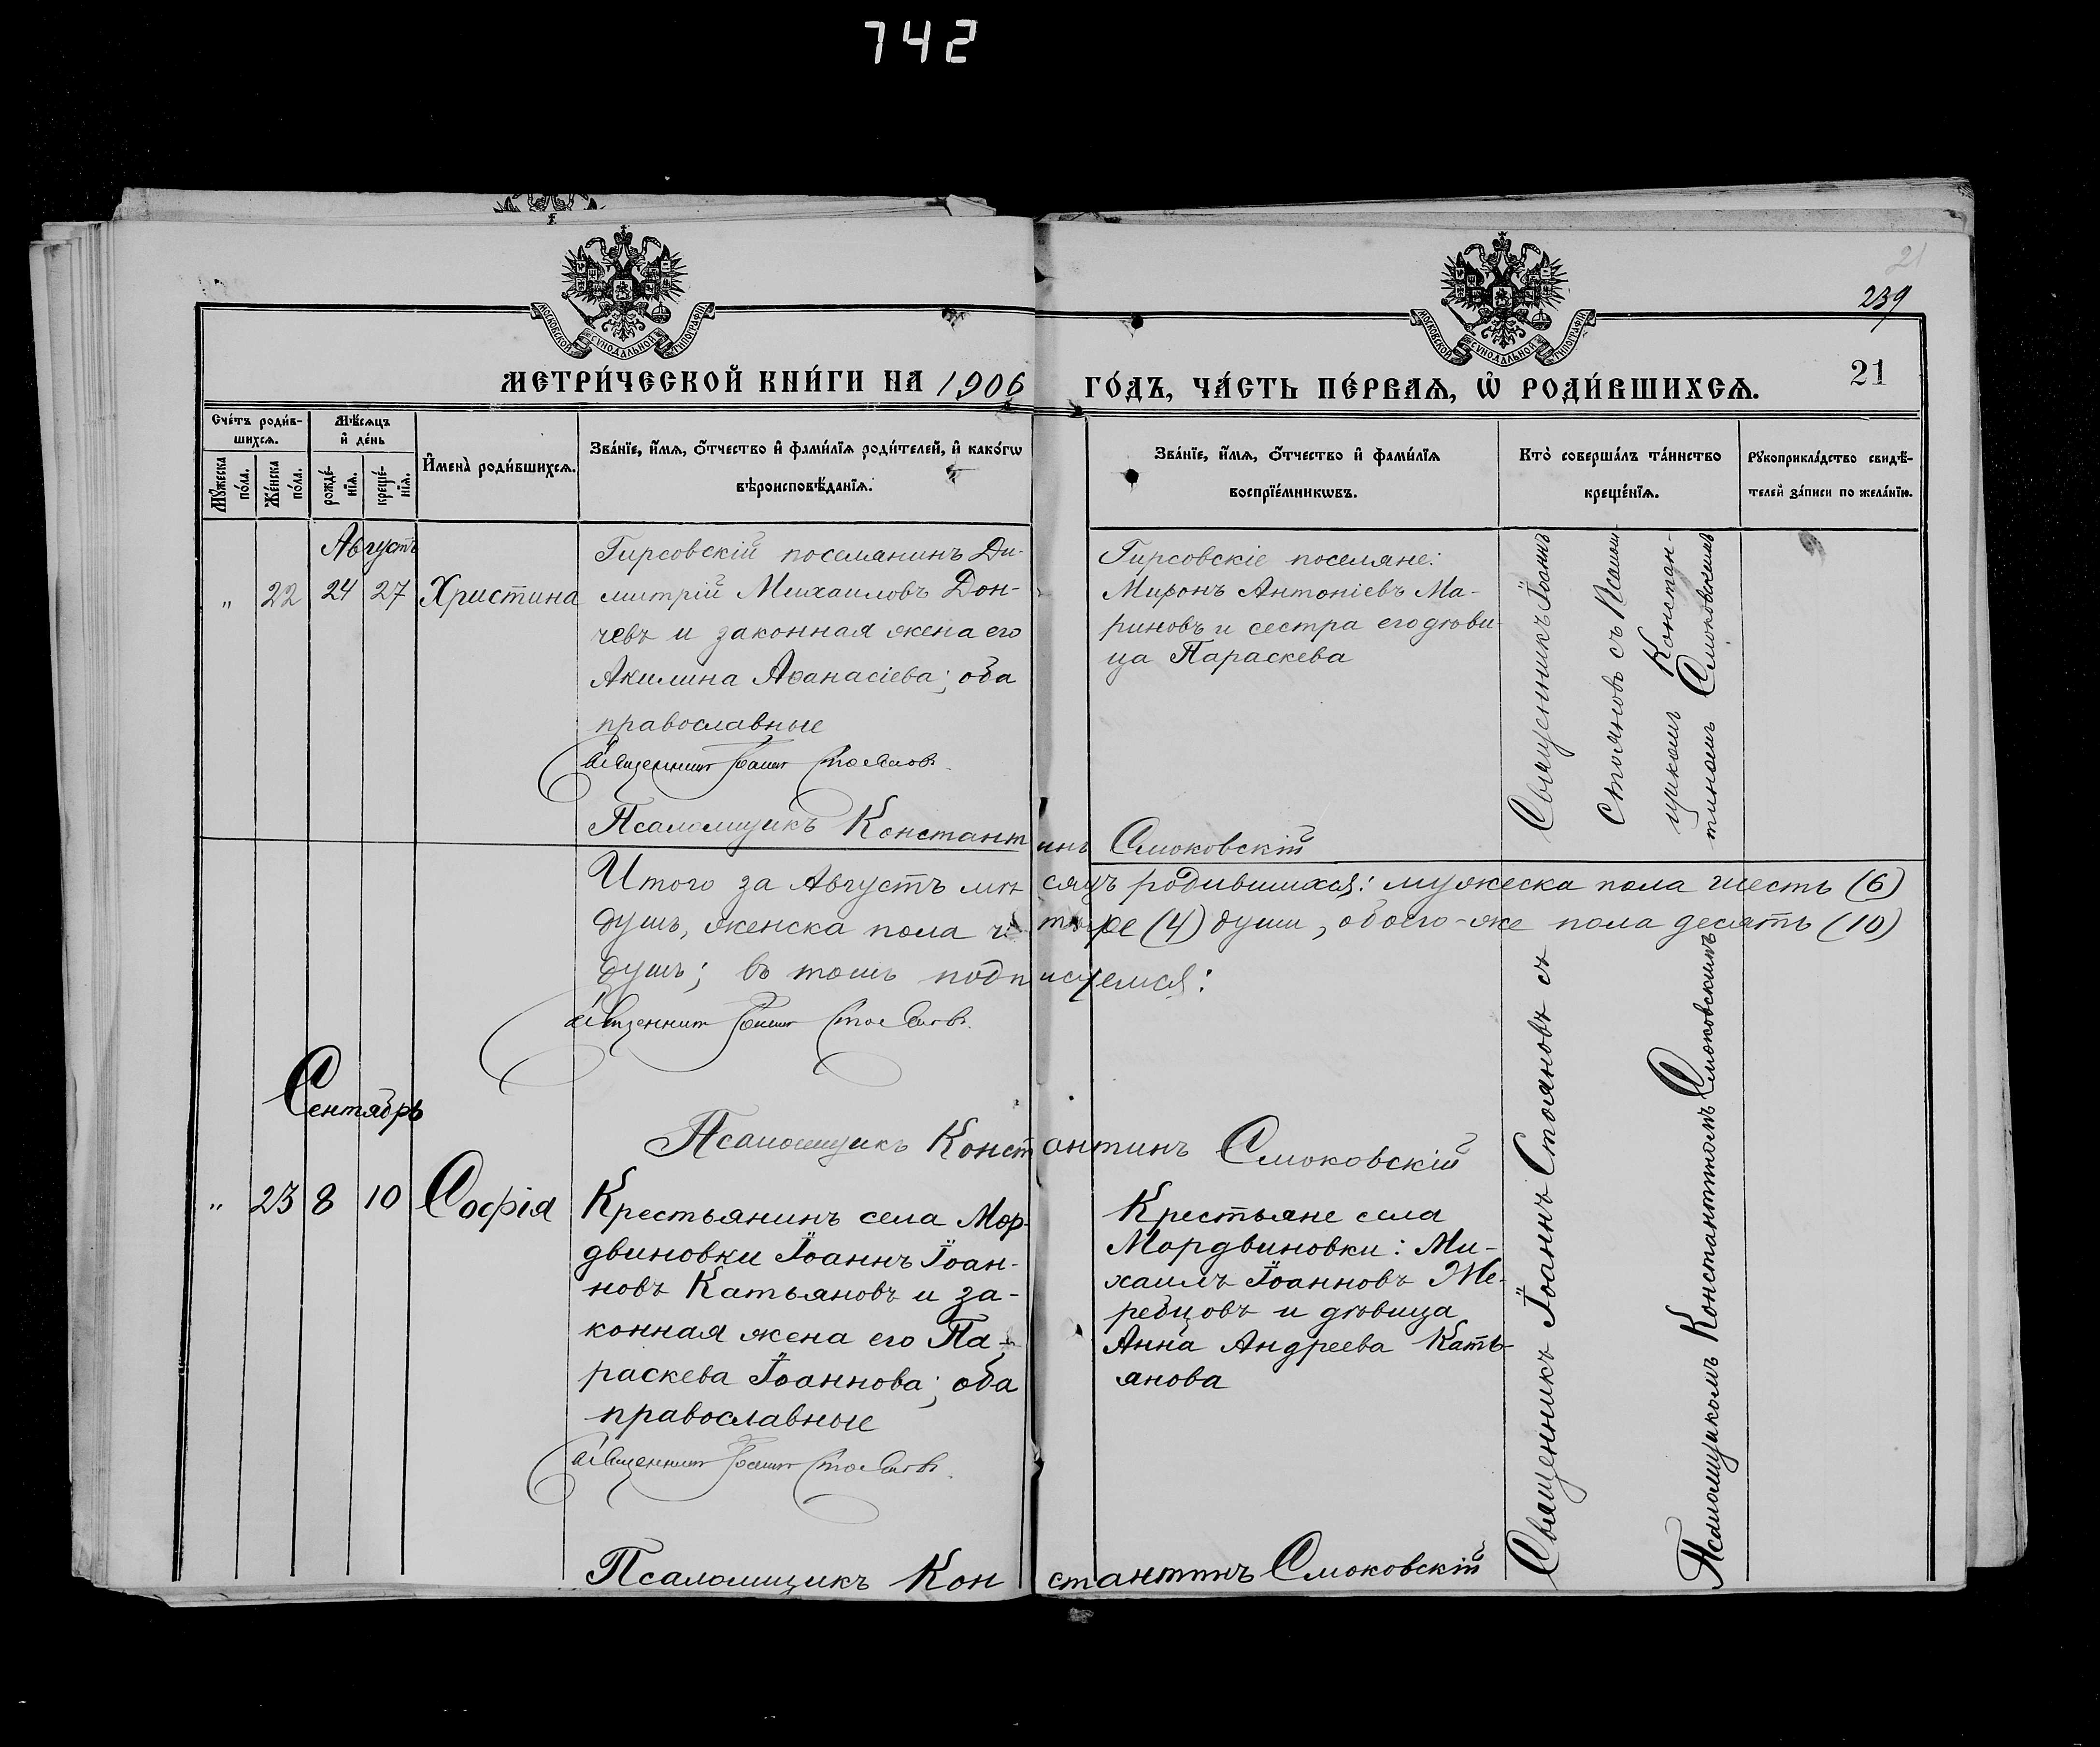 742
21
239
МОСКОВСКОЙ СѴНОДАЛЬНОЙ ТИПОГРАФІИ
МОСКОВСКОЙ СѴНОДАЛЬНОЙ ТИПОГРАФІИ
МЕТРИ́ЧЕСКОЙ КНИ́ГИ НА 1906
ГО́ДЪ, ЧА́СТЬ ПЕ́РВАѦ, Ѡ҆ РОДИ́ВШИХСѦ.
21
Сче́тъ роди́в-
шихсѧ.
Мꙋ́жеска по́ла.
Же́нска по́ла.
Мѣ́сѧцъ
и҆ де́нь
рожде́-
нїѧ.
креще́-
нїѧ.
И҆мена̀ роди́вшихсѧ.
Зва́нїе, и҆́мѧ, ѻ҆́тчество и҆ фами́лїѧ роди́телей, и҆ како́гѡ
вѣроисповѣ́данїѧ.
Зва́нїе, и҆́мѧ, ѻ҆́тчество и҆ фами́лїѧ
воспрїе́мникѡвъ.
Кто̀ соверша́лъ та́инство
креще́нїѧ.
Рꙋкоприкла́дство свидѣ́-
телей за́писи по жела́нїю.
Августъ
" 22 24 27 Христина
Гирсовскій поселянинъ Ди-
митрій Михаиловъ Дон-
чевъ и законная жена его
Акилина Аѳанасіева; оба
православные
Священникъ Іоаннъ Стояновъ.
Псаломщикъ Константинъ Смоковскій
Гирсовскіе поселяне:
Миронъ Антоніевъ Ма-
риновъ и сестра его дѣви-
ца Параскева
Священникъ Іоаннъ
Стояновъ съ Псалом-
щикомъ Констан-
тиномъ Смоковскимъ
Итого за Августъ мѣсяцъ родившихся: мужеска пола шесть (6)
душъ, женска пола четыре (4) души, обоего-же пола десять (10)
душъ; въ томъ подписуемся:
Священникъ Іоаннъ Стояновъ.
Псаломщикъ Константинъ Смоковскій
Сентябрь
" 23 8 10 Софія
Крестьянинъ села Мор-
двиновки Іоаннъ Іоан-
новъ Катьяновъ и за-
конная жена его Па-
раскева Іоаннова; оба
православные
Священникъ Іоаннъ Стояновъ.
Псаломщикъ Константинъ Смоковскій
Крестьяне села
Мордвиновки: Ми-
хаилъ Іоанновъ Же-
ребцовъ и дѣвица
Анна Андреева Кать-
янова
Священникъ Іоаннъ Стояновъ съ
Псаломщикомъ Константиномъ Смоковскимъ